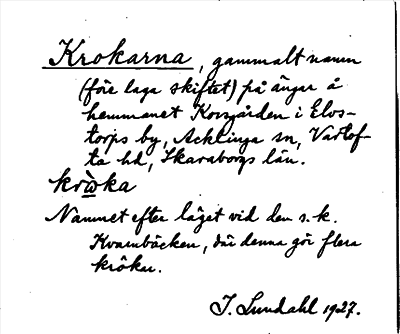 Krokarna, gammalt namn
(före laga skiftet) på ängar å
hemmanet Korsgården i Elos-
torps by, Acklinga sn, Vartof-
ta hd, Skaraborgs län.
krẁka
Namnet efter läget vid den s.k.
Kvarnbäcken, där denna gör flera
krökar.
J. Lundahl 1927.